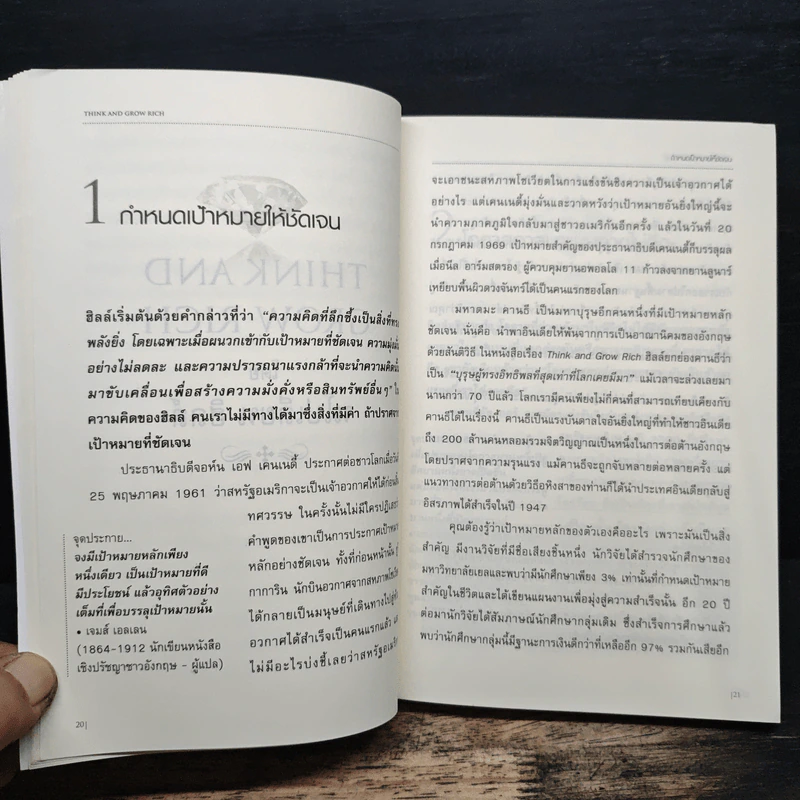 THINK AND GROW RICH
1 กำหนดเป้าหมายให้ชัดเจน
THINK AND
GROW RICH
ฮิลล์เริ่มต้นด้วยคำกล่าวที่ว่า “ความคิดที่ลึกซึ้งเป็นสิ่งที่ทรง
พลังยิ่ง โดยเฉพาะเมื่อผนวกเข้ากับเป้าหมายที่ชัดเจน ความมุ่งมั่น
อย่างไม่ลดละ และความปรารถนาแรงกล้าที่จะนำความคิดนั้น
มาขับเคลื่อนเพื่อสร้างความมั่งคั่งหรือสินทรัพย์อื่นๆ”
ความคิดของฮิลล์ คนเราไม่มีทางได้มาซึ่งสิ่งที่มีค่า ถ้าปราศจาก
เป้าหมายที่ชัดเจน
ประธานาธิบดีจอห์น เอฟ เคนเนดี้ ประกาศต่อชาวโลกเมื่อวันที่
25 พฤษภาคม 1961 ว่าสหรัฐอเมริกาจะเป็นเจ้าอวกาศให้ได้ก่อน
ทศวรรษ ในครั้งนั้นไม่มีใครปฏิเสธ
คำพูดของเขาเป็นการประกาศเป้าหมาย
หลักอย่างชัดเจน ทั้งที่ก่อนหน้านั้น
กาการิน นักบินอวกาศจากสหภาพโซเวียต
ได้กลายเป็นมนุษย์ที่เดินทางไปสู่
อวกาศได้สำเร็จเป็นคนแรกแล้ว
ไม่มีอะไรบ่งชี้เลยว่าสหรัฐอเมริกา
จุดประกาย...
จงมีเป้าหมายหลักเพียง
หนึ่งเดียว เป็นเป้าหมายที่ดี
มีประโยชน์ แล้วอุทิศตัวอย่าง
เต็มที่เพื่อบรรลุเป้าหมายนั้น
• เจมส์ เอลเลน
(1864-1912 นักเขียนหนังสือ
เชิงปรัชญาชาวอังกฤษ - ผู้แปล)
20|
กำหนดเป้าหมายให้ชัดเจน
จะเอาชนะสหภาพโซเวียตในการแข่งขันชิงความเป็นเจ้าอวกาศได้
อย่างไร แต่เคนเนดี้มุ่งมั่นและวาดหวังว่าเป้าหมายอันยิ่งใหญ่นี้จะ
นำความภาคภูมิใจกลับมาสู่ชาวอเมริกันอีกครั้ง แล้วในวันที่ 20
กรกฎาคม 1969 เป้าหมายสำคัญของประธานาธิบดีเคนเนดี้ก็บรรลุผล
เมื่อนีล อาร์มสตรอง ผู้ควบคุมยานอพอลโล 11 ก้าวลงจากยานลูนาร์
เหยียบพื้นผิวดวงจันทร์ได้เป็นคนแรกของโลก
มหาตมะ คานธี เป็นมหาบุรุษอีกคนหนึ่งที่มีเป้าหมายหลัก
ชัดเจน นั่นคือ นำพาอินเดียให้พ้นจากการเป็นอาณานิคมของอังกฤษ
ด้วยสันติวิธี ในหนังสือเรื่อง Think and Grow Rich ฮิลล์ยกย่องคานธีว่า
เป็น “บุรุษผู้ทรงอิทธิพลที่สุดเท่าที่โลกเคยมีมา” แม้เวลาจะล่วงเลยมา
นานกว่า 70 ปีแล้ว โลกเรามีคนเพียงไม่กี่คนที่สามารถเทียบเคียงกับ
คานธีได้ในเรื่องนี้ คานธีเป็นแรงบันดาลใจอันยิ่งใหญ่ที่ทำให้ชาวอินเดีย
ถึง 200 ล้านคนหลอมรวมจิตวิญญาณเป็นหนึ่งในการต่อต้านอังกฤษ
โดยปราศจากความรุนแรง แม้คานธีจะถูกจับหลายต่อหลายครั้ง แต่
แนวทางการต่อต้านด้วยวิธีอหิงสาของท่านก็ได้นำประเทศอินเดียกลับสู่
อิสรภาพได้สำเร็จในปี 1947
คุณต้องรู้ว่าเป้าหมายหลักของตัวเองคืออะไร เพราะมันเป็นสิ่ง
สำคัญ มีงานวิจัยที่มีชื่อเสียงชิ้นหนึ่ง นักวิจัยได้สำรวจนักศึกษาของ
มหาวิทยาลัยเยลและพบว่ามีนักศึกษาเพียง 3% เท่านั้นที่กำหนดเป้าหมาย
สำคัญในชีวิตและได้เขียนแผนงานเพื่อมุ่งสู่ความสำเร็จนั้น อีก 20 ปี
ต่อมานักวิจัยได้สัมภาษณ์นักศึกษากลุ่มเดิม ซึ่งสำเร็จการศึกษาแล้ว
พบว่านักศึกษากลุ่มนี้มีฐานะการเงินดีกว่าที่เหลืออีก 97% รวมกันเสียอีก
|21